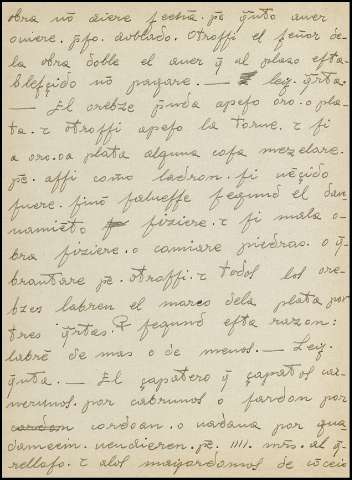 obra nõ oiere fecha. pẽ q̃nto auer
ouiere. p̃so. doblado. Otrossi el señor de-
la obra doble el auer q̃ al plazo esta-
blesçido no pagare. — ley. q̃rta.
— El orebze p̃nda a peso oro. o pla-
ta. τ otrossi a peso la torne. τ si
a oro. o a plata alguna cosa mezclare.
pẽ. assi como ladron. si uẽçido
fuere. sinõ salueffe segund el dan-
namiẽto fiziere. τ si mala o-
bra fiziere. o camiare piedras. o q̃-
brantare pẽ. otrossi. τ todos los ore-
bzes labren el marco dela plata por
tres q̃rtas. segund esta razon:
labrẽ de mas o de menos. — Ley.
q̃nta. — El çapatero q̃ çapatos car-
nerunos. por cabrunos o fardon por
cordoan. o uadana por gua
damecin. uendieren. pẽ. IIII. mr̃s. al q̃-
rellaso. τ alos mayordomos de cõceio